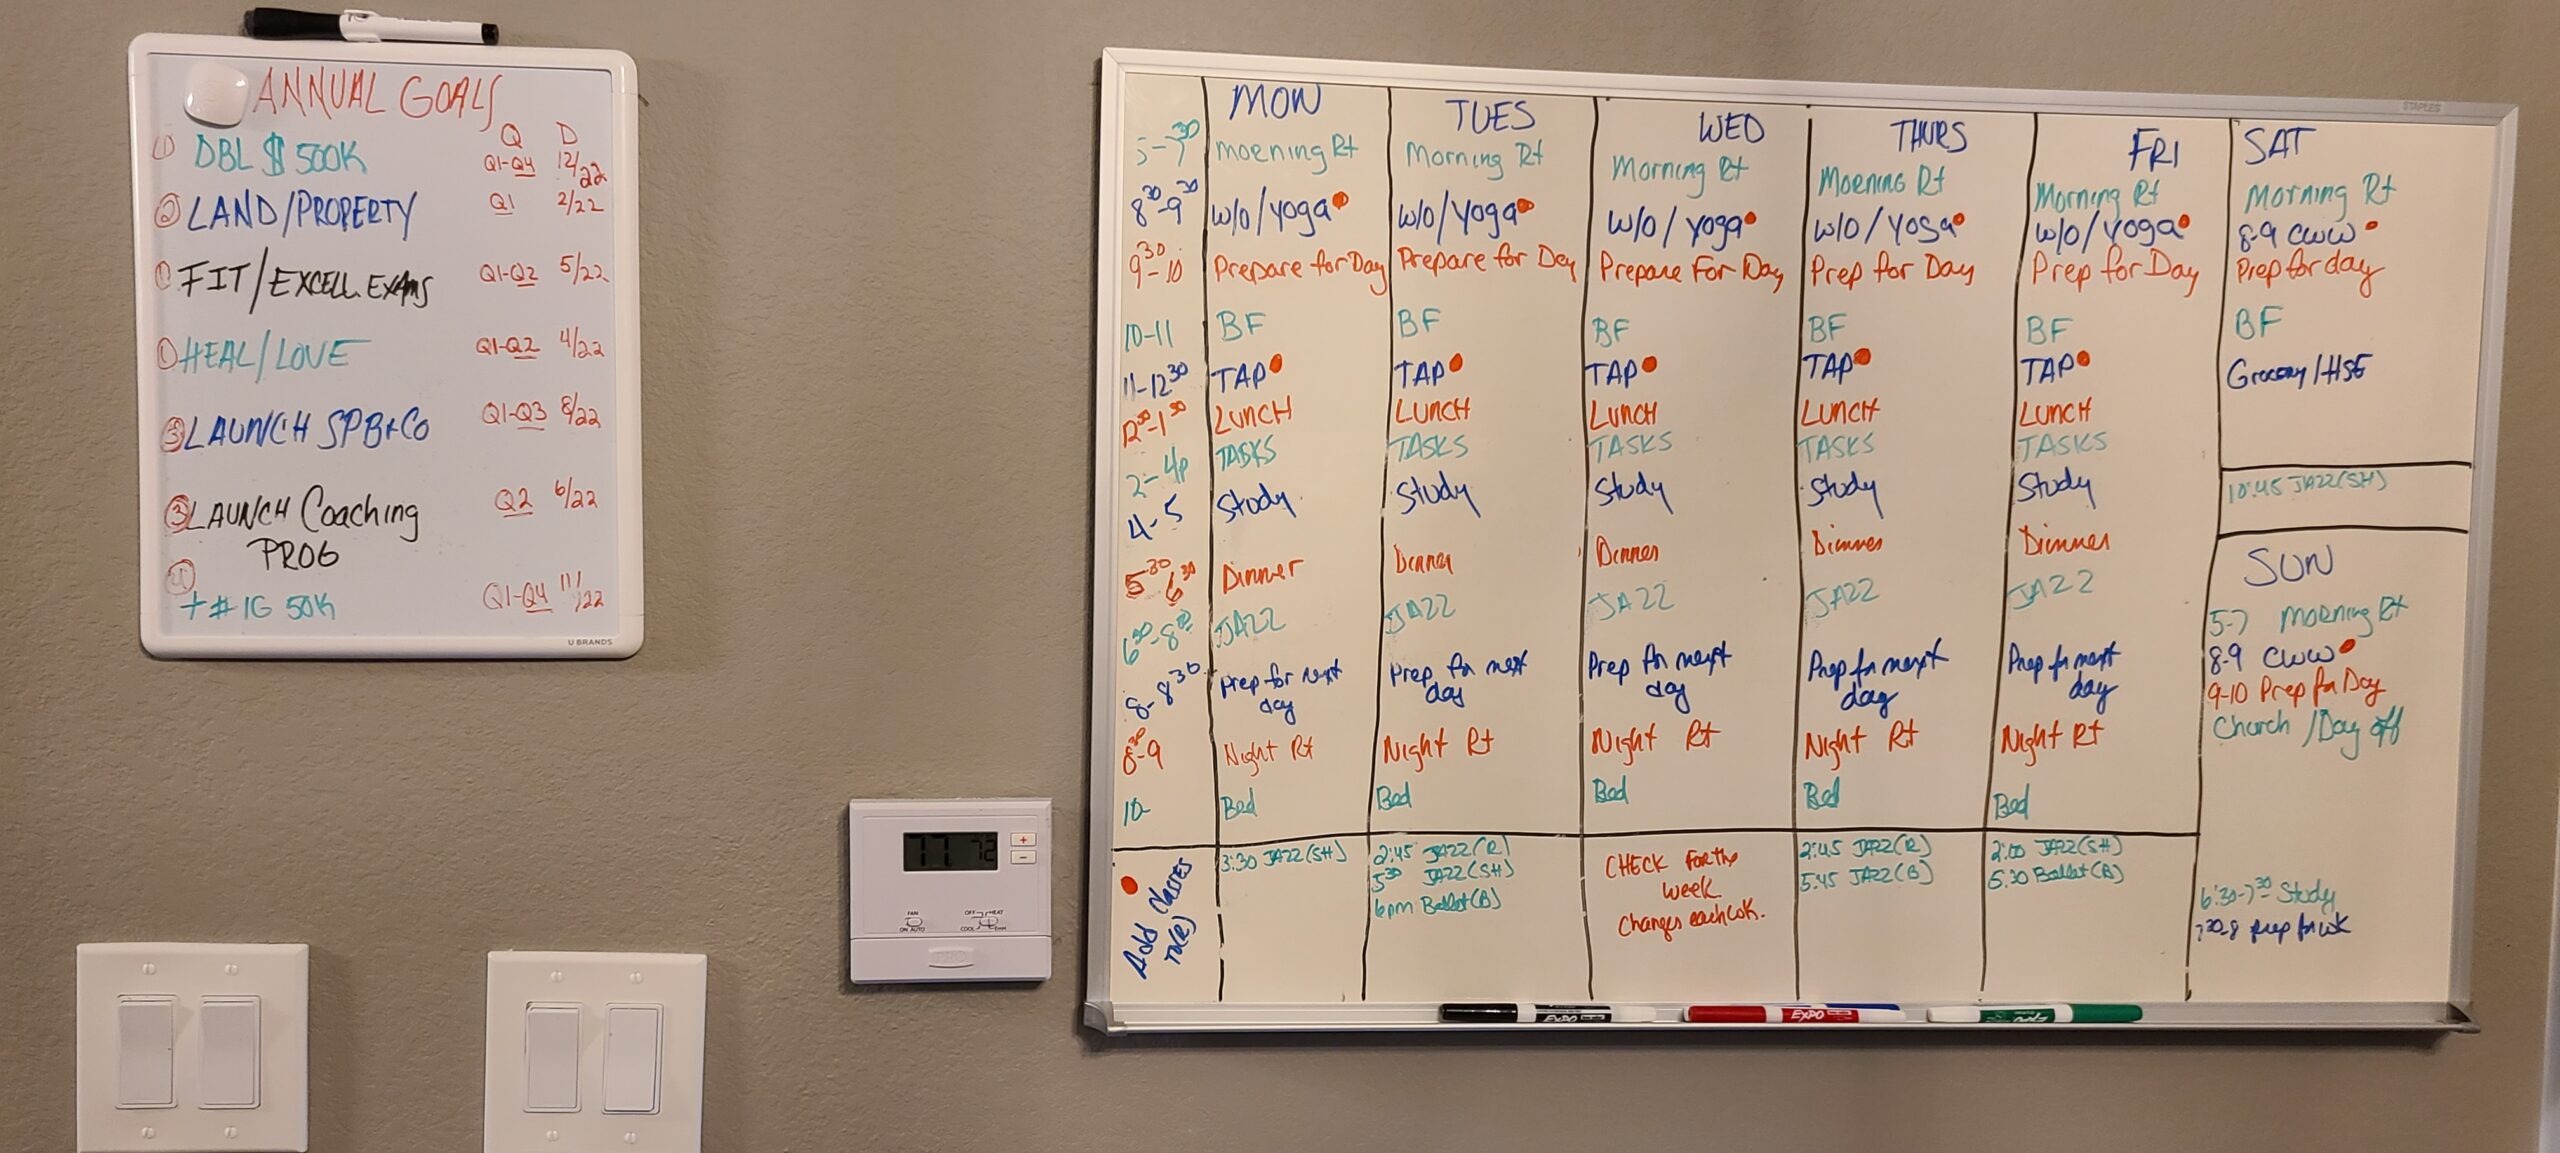 ANNUAL GOALS
Q D
① DBL $ 500K Q1-Q4 12/22
② LAND/PROPERTY Q1 2/22
① FIT/EXCELL. EXAMS Q1-Q2 5/22
① HEAL/LOVE Q1-Q2 4/22
③ LAUNCH SPB+Co Q1-Q3 8/22
③ LAUNCH Coaching Q2 6/22
PROG
④
+ # IG 50K Q1-Q4 11/22
U BRANDS
STAPLES
MON TUES WED THURS FRI SAT
5-7 30 Morning Rt Morning Rt Morning Rt Morning Rt Morning Rt Morning Rt
8 30-9 30 W/O/Yoga W/O/Yoga W/O/Yoga W/O/Yoga W/O/Yoga 8-9 CWW
9 30-10 Prepare for Day Prepare for Day Prepare For Day Prep for Day Prep for Day Prep for day
10-11 BF BF BF BF BF BF
11-12 30 TAP TAP TAP TAP TAP Grocery/HSE
12 30-1 30 LUNCH LUNCH LUNCH LUNCH LUNCH
2-4p TASKS TASKS TASKS TASKS TASKS
4-5 Study Study Study Study Study
10:45 JAZZ(SH)
5 30 6 30 Dinner Dinner Dinner Dinner Dinner
SUN
6 30-8 JAZZ JAZZ JAZZ JAZZ JAZZ
5-7 Morning Rt
8-8 30 Prep for next Prep for next Prep for next Prep for next Prep for next
day day day day day
8-9 CWW
9-10 Prep for Day
8 30-9 Night Rt Night Rt Night Rt Night Rt Night Rt
Church/Day off
10- Bed Bed Bed Bed Bed
Add Classes
3:30 JAZZ(SH)
2:45 JAZZ(R)
5 30 JAZZ(SH)
6pm Ballet(B)
CHECK For the
week
Changes each wk.
2:45 JAZZ(R)
5:45 JAZZ(B)
2:00 JAZZ(SH)
5:30 Ballet(B)
6:30-7 30 Study
7 30-8 prep for wk
77 72
FAN
ON AUTO
OFF HEAT
COOL
PRO
EXPO
EXPO
EXPO